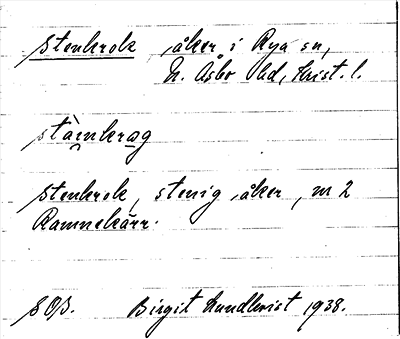 stenkrok , åker i Rya sn,
N. Åsbo hd, Krist. l.
stàinkrag
stenkrok, stenig åker, nr 2
Ramnekärr.
SOB. Birgit Lundkvist 1938.